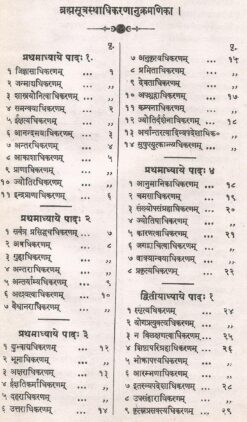 ब्रह्मसूत्रस्थाधिकरणानुक्रमणिका ।
पृ.
प्रथमाध्याये पादः १.
१ जिज्ञासाधिकरणम् ... १
२ जन्माद्यधिकरणम् ... ,,
३ शास्त्रयोनित्वाधिकरणम् ,,
४ समन्वयाधिकरणम् ... ३
५ ईक्षत्यधिकरणम् ... ,,
६ आनन्दमयाधिकरणम् ,,
७ अन्तरधिकरणम् ...
८ आकाशाधिकरणम् ...
९ प्राणाधिकरणम् ... ,,
१० ज्योतिरधिकरणम् ... ,,
११ इन्द्रप्राणाधिकरणम् ,,
प्रथमाध्याये पादः २
१ सर्वत्र प्रसिद्ध्यधिकरणम् ७
२ अत्रधिकरणम् ... ८
३ गुहाधिकरणम् ... ,,
४ अन्तराधिकरणम् ... ,,
५ अन्तर्याम्यधिकरणम्
६ अदृश्यत्वाधिकरणम् ...
७ वैश्वानराधिकरणम् ...
प्रथमाध्याये पादः ३
१ द्युभ्वाद्यधिकरणम् ... १२
२ भूमाधिकरणम् ...
३ अक्षराधिकरणम् ... १३
४ ईक्षतिकर्माधिकरणम् ,,
५ दहराधिकरणम् ... ,,
६ उत्तराधिकरणम् ... १४
पृ.
७ अनुकृत्यधिकरणम् ... १५
८ प्रमिताधिकरणम् ... ,,
९ देवताधिकरणम् ... ,,
१० अपशूद्राधिकरणम् ... १७
११ कम्पनाधिकरणम् ... ,,
१२ ज्योतिर्दर्शनाधिकरणम् ,,
१३ अर्थान्तरत्वादिव्यपदेशाधिक०
१४ सुषुप्त्युत्क्रान्त्यधिकरणम् ,,
प्रथमाध्याये पादः ४
१ आनुमानिकाधिकरणम् १८
२ चमसाधिकरणम् ... १९
३ संख्योपसंग्रहाधिकरणम्
४ ज्योतिषाधिकरणम् ...
५ कारणत्वाधिकरणम् ... २१
६ जगद्वाचित्वाधिकरणम् ,,
७ वाक्यान्वयाधिकरणम् ,,
८ प्रकृत्यधिकरणम् ... २३
द्वितीयाध्याये पादः १
१ स्मृत्यधिकरणम् ... २४
२ योगप्रत्युक्त्यधिकरणम् ,,
३ न विलक्षणत्वाधिकरणम् ,,
४ शिष्टापरिग्रहाधिकरणम् २६
५ भोक्त्रापत्त्यधिकरणम् ,,
६ आरम्भणाधिकरणम् ... ,,
७ इतरव्यपदेशाधिकरणम् २८
८ उपसंहाराधिकरणम् ... ,,
९ कृत्स्नप्रसक्त्यधिकरणम् २९